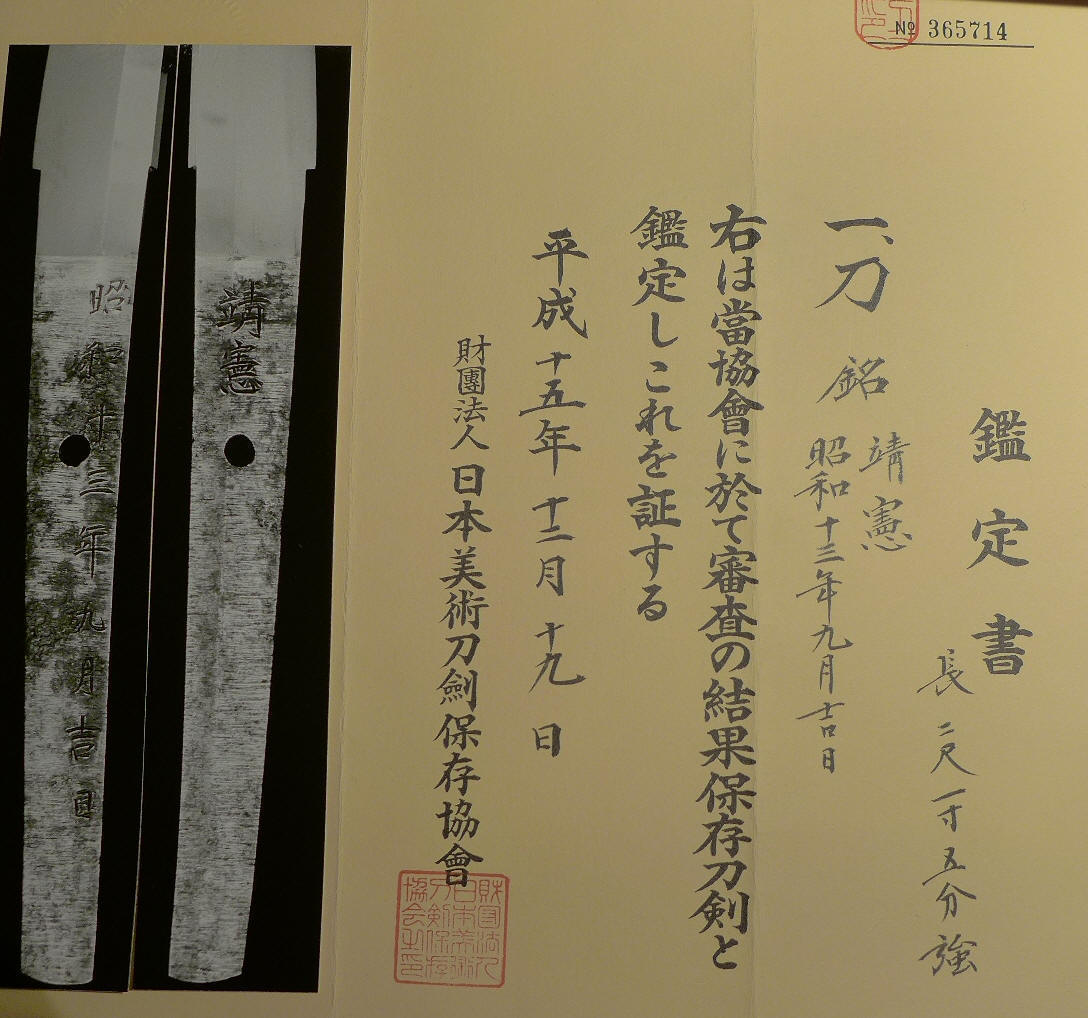 № 365714
鑑定書
長二尺一寸五分強
一、刀 銘 靖憲
昭和十三年九月吉日
右は當協會に於て審査の結果保存刀剣と
鑑定しこれを証する
平成十五年十二月十九日
財團法人日本美術刀劍保存協會
財団法人日本美術刀剣保存協会之印
靖憲
昭和十三年九月吉日